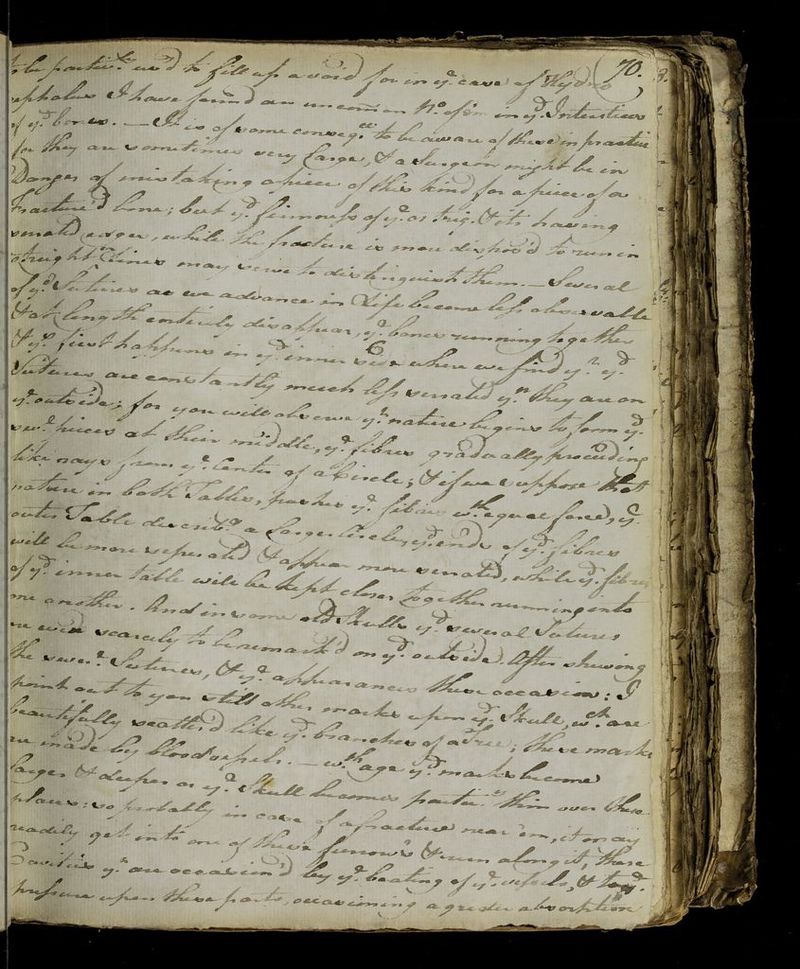 70.
be partic.r us'd to fill up a void for in y.e case of Hydro
cephalus I have found an uncommon N.o of 'em in y.e Interstices
of y.e bones. — It is of some conseq.ce to be aware of these in practice
for they are sometimes very large, & a Surgeon might be in
Danger of mistaking a piece of this kind for a piece of a
Fractur'd bone; but y.e firmness of y.e os triq. & its having
serrated edges, while the fracture is more dispos'd to run in
streight Lines may serve to distinguish them. — Several
of y.e Sutures as we advance in Life become less observable
& at length entirely disappear, y.e bones running together
& y.s first happens in y.e inner side where we find y.t y.e
Sutures are constantly much less serrated y.n they are on
y.e outside; for you will observe y.t nature begins to form y.e
sev.l pieces at their middle, y.e fibres gradually proceeding
like rays from y.e Center of a Circle; & if we suppose that
nature in both Tables, pushes y.e fibres w.th equal force, y.e
outer Table describ.g a larger Circle, y.e ends of y.e fibres
will be more seperated & appear more serrated, while y.e fibres
of y.e inner table will be kept closer together running into
one another. And in some old Skulls y.e several Sutures
are even scarcely to be remark'd on y.e outside. After shewing
the sever.l Sutures, & y.e appearances these occasion; I
point out to you still other marks upon y.e Skull, w.ch are
beautifully scatter'd like y.e branches of a Tree; these marks
are made by blood vessels. — w.th age y.e marks become
larger & deeper as y.e Skull becomes partic.r thin over these
places: so probably in case of a fracture near 'em, it may
readily get into one of these furrows & run along it, these
Cavities y.t are occasion'd by y.e beating of y.e vessels, & y.e
pressure upon these parts, occasioning a greater absorption